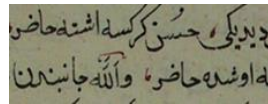 دیدیکی حسن کرکسه اشته حاضر
اوشده حاضر والله جانبندن